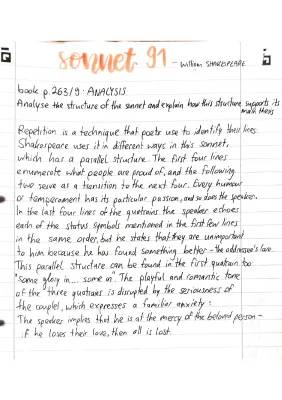 sonnet 91 - William SHAKESPEARE
book p. 263/9 : ANALYSIS
Analyse the structure of the sonnet and explain how this structure supports its
main thesis
Repetition is a technique that poets use to identify their lines.
Shakespeare uses it in different ways in this sonnet,
which has a parallel structure. The first four lines
enumerate what people are proud of, and the following
two serve as a transition to the next four. Every humour
or temperament has its particular passion, and so does the speaker.
In the last four lines of the quatrains the speaker echoes
each of the status symbols mentioned in the first few lines
in the same order, but he states that they are unimportant
to him because he has found something better - the addressee's love.
This parallel structure can be found in the first quatrain too:
"some glory in... some in". The playful and romantic tone
of the three quatrains is disrupted by the seriousness of
the couplet, which expresses a familiar anxiety:
The speaker implies that he is at the mercy of the beloved person -
if he loses their love, then all is lost.